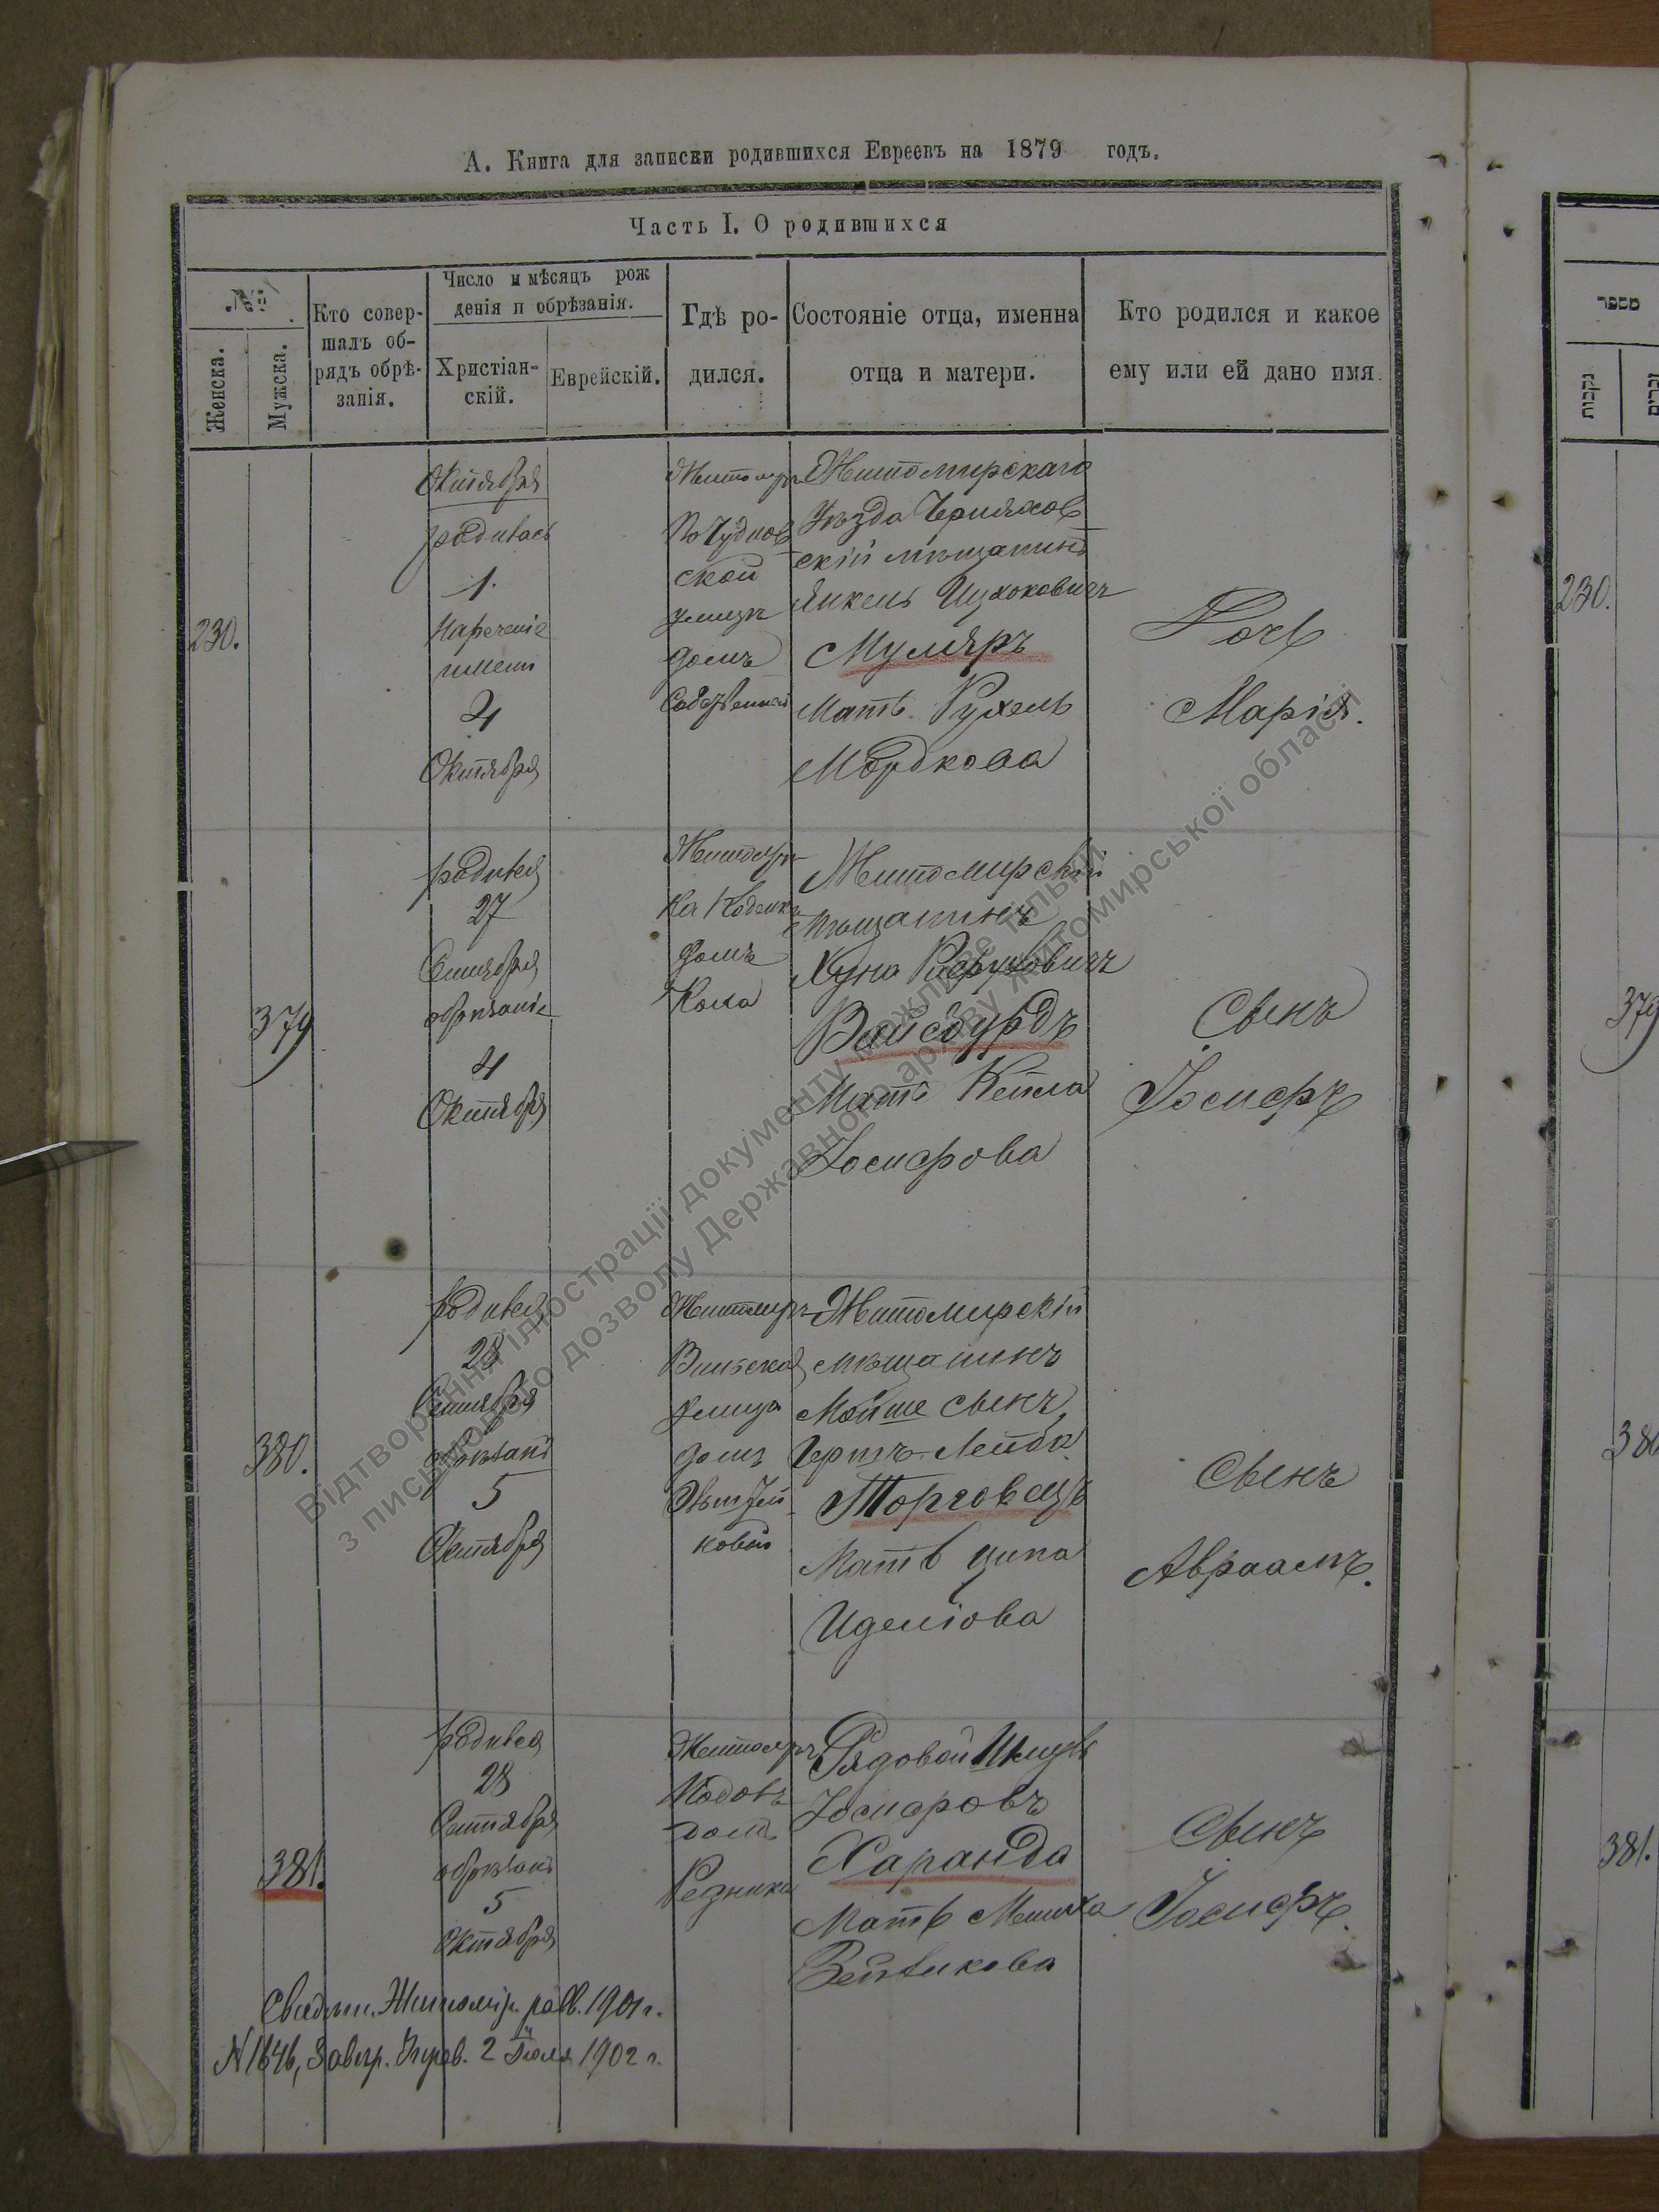 А. Книга для записки родившихся Евреевъ на 1879 годъ.
Часть I. О родившихся
№
Женска.
Мужска.
Кто совер-
шалъ об-
рядъ обрѣ-
занія.
Число и мѣсяцъ рож
денія и обрѣзанія.
Христіан-
скій.
Еврейскій.
Гдѣ ро-
дился.
Состояніе отца, именна
отца и матери.
Кто родился и какое
ему или ей дано имя.
230.
Октября
родилась
1.
Нареченіе
имени
4
Октября
Житомиръ
По Чуднов
ской
улицѣ
домъ
Житомирскаго
Уѣзда Черняхов
скій мѣщанинъ
Янкель Ицхоковичъ
Муляръ
Мать Рухель
Мордкова
Дочь
Марія.
379
родился
27
Сентября
обрѣзаніе
4
Октября
Житомиръ
домъ
Кона
Житомирскій
мѣщанинъ
Вайсбурдъ
Мать Кейла
Іосифова
Сынъ
Іосифъ
380.
родился
28
Сентября
обрѣзані
5
Октября
Житомиръ
Вильская
улица
домъ
Житомирскій
мѣщанинъ
Мойше сынъ
Герт-Лейба
Торговецъ
Мать Ципа
Иделіова
Сынъ
Авраамъ.
381.
родился
28
Сентября
обрѣзані
5
Октября
Житомиръ
домъ
Рядовой Шмуль
Іосифовъ
Харанда
Мать
Зейвикова
Сынъ
Іосифъ.
Свидѣт. Житомір. равв. 1901 г.
N 1646, Завѣр. Управ. 2 Іюля 1902 г.
מספר
נקבות
זכרים
230.
379
380
381.
Відтворення ілюстрації документу можливе тільки
з письмового дозволу Державного архіву Житомирської області